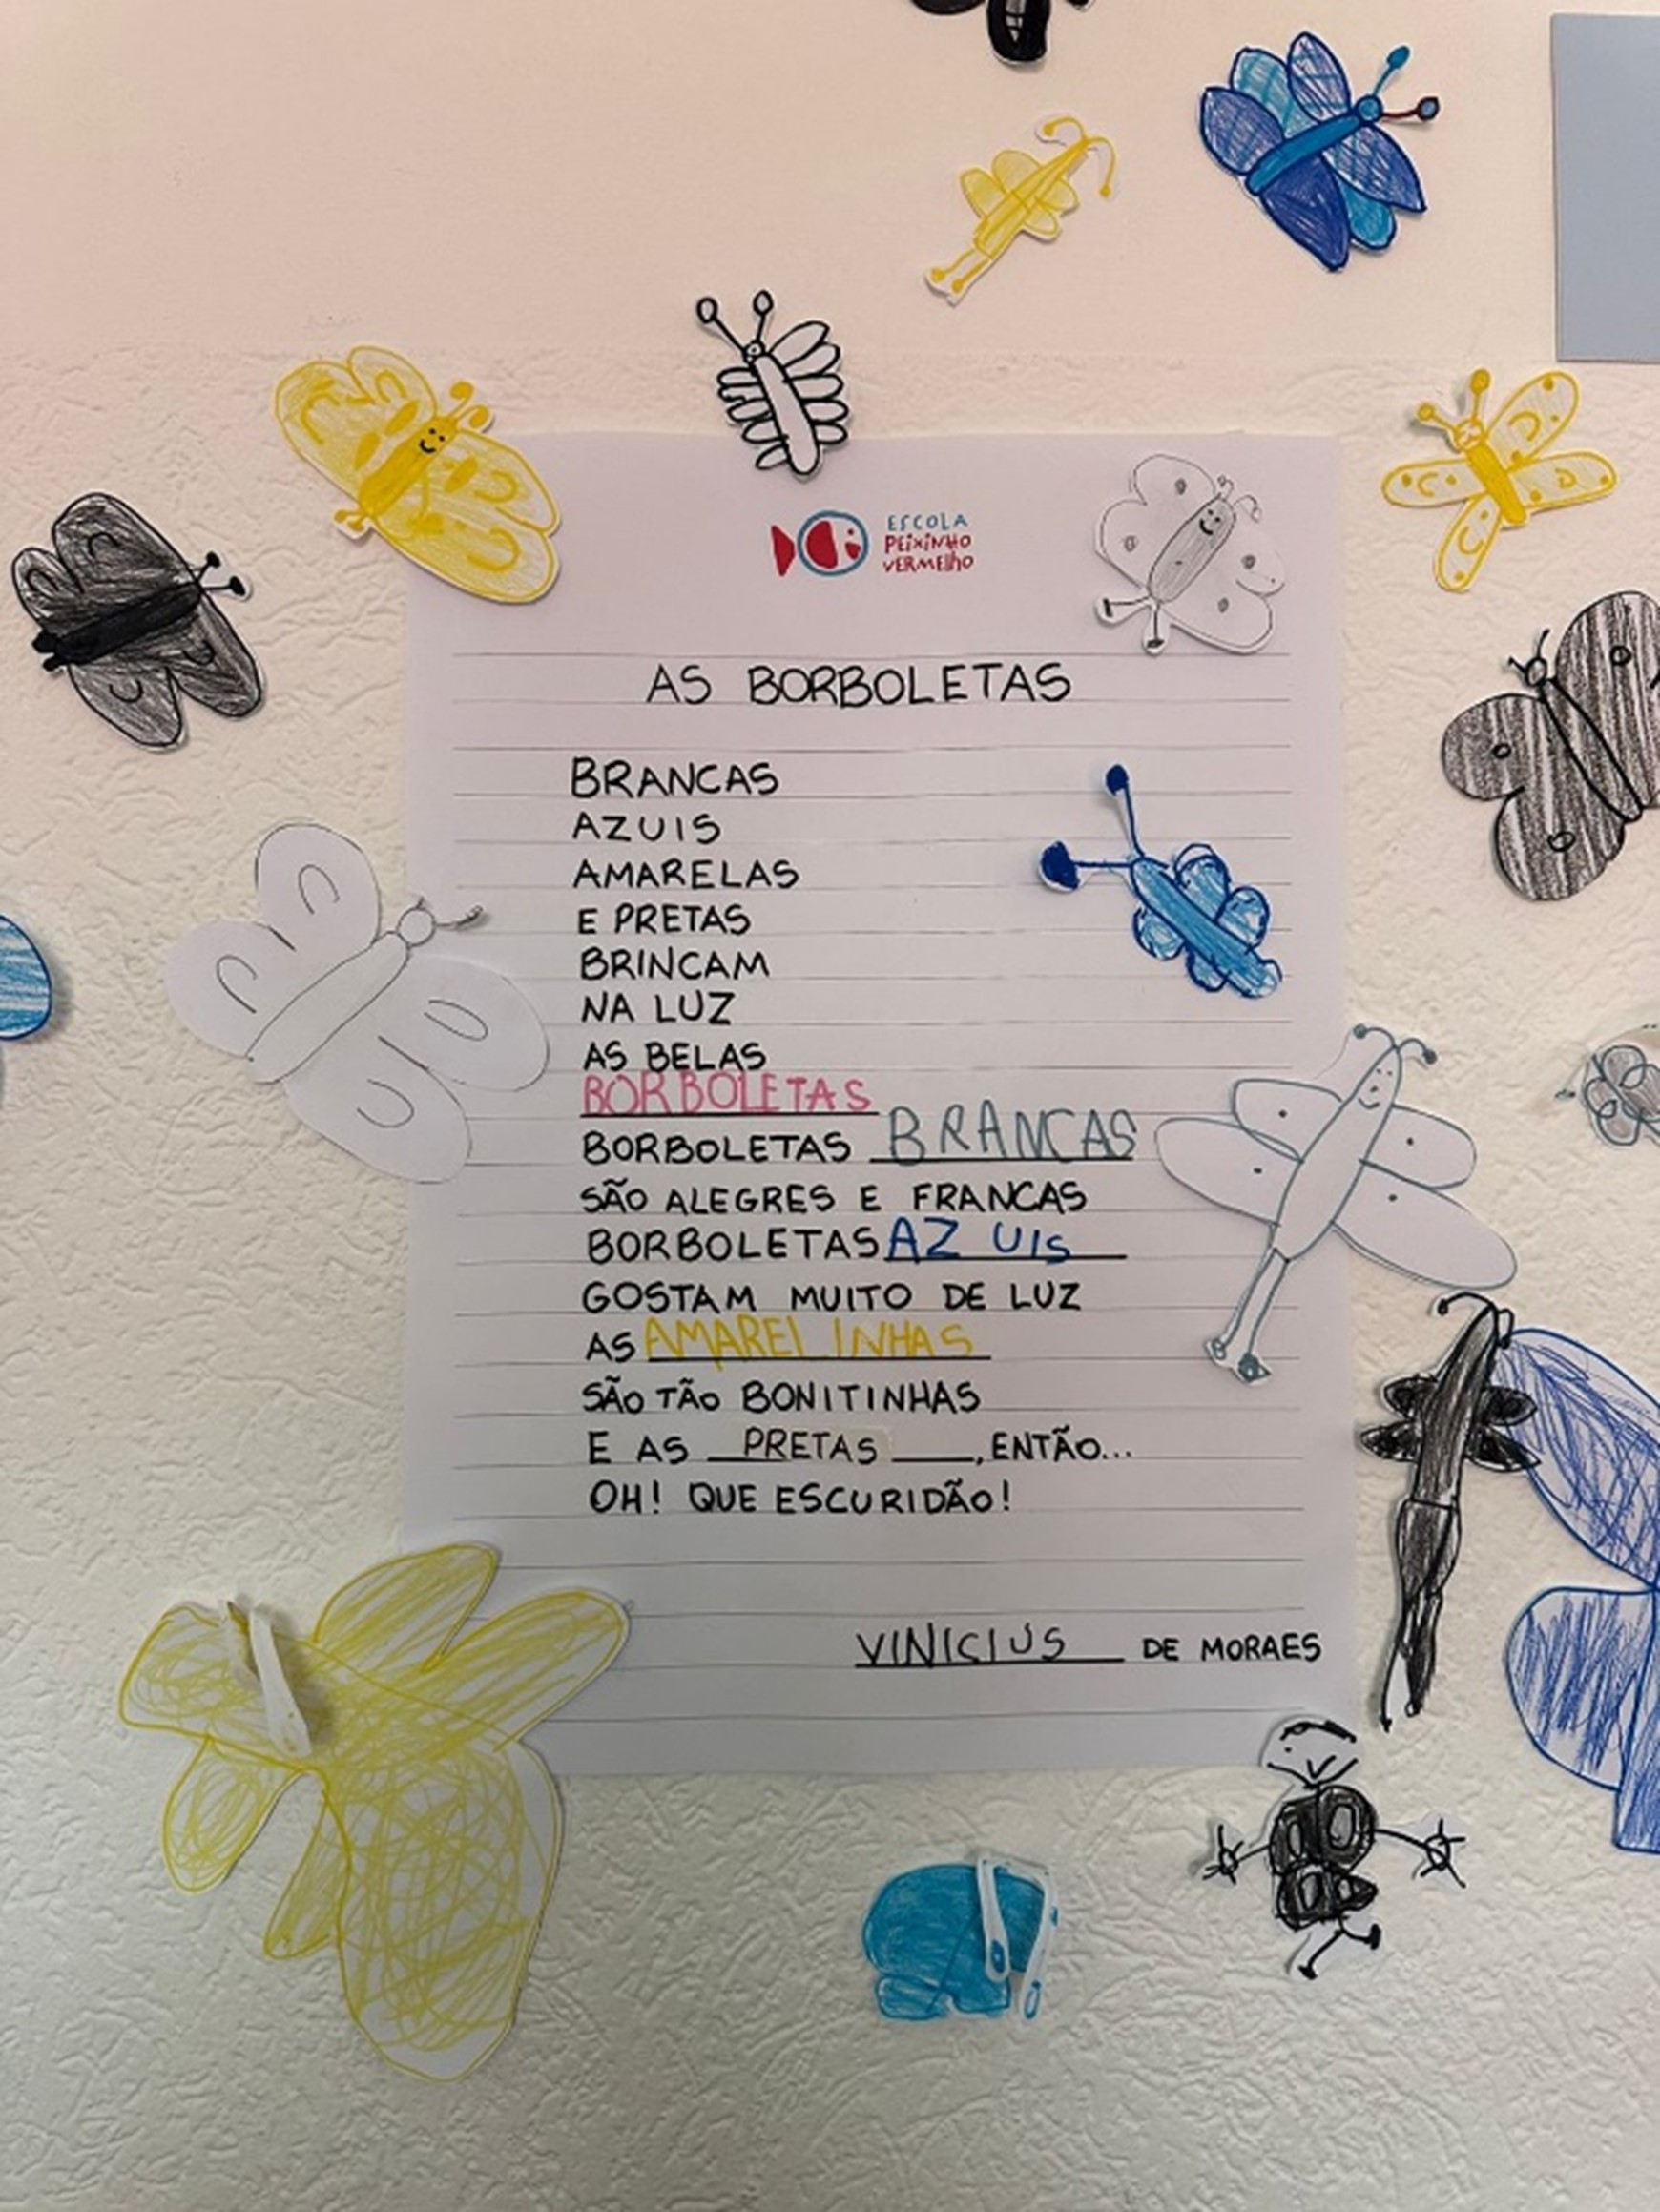 ESCOLA
PEIXINHO
VERMELHO
AS BORBOLETAS
BRANCAS
AZUIS
AMARELAS
E PRETAS
BRINCAM
NA LUZ
AS BELAS
BORBOLETAS
BORBOLETAS BRANCAS
SÃO ALEGRES E FRANCAS
BORBOLETAS AZUIS
GOSTAM MUITO DE LUZ
AS AMARELINHAS
SÃO TÃO BONITINHAS
E AS PRETAS, ENTÃO...
OH! QUE ESCURIDÃO!
VINICIUS DE MORAES